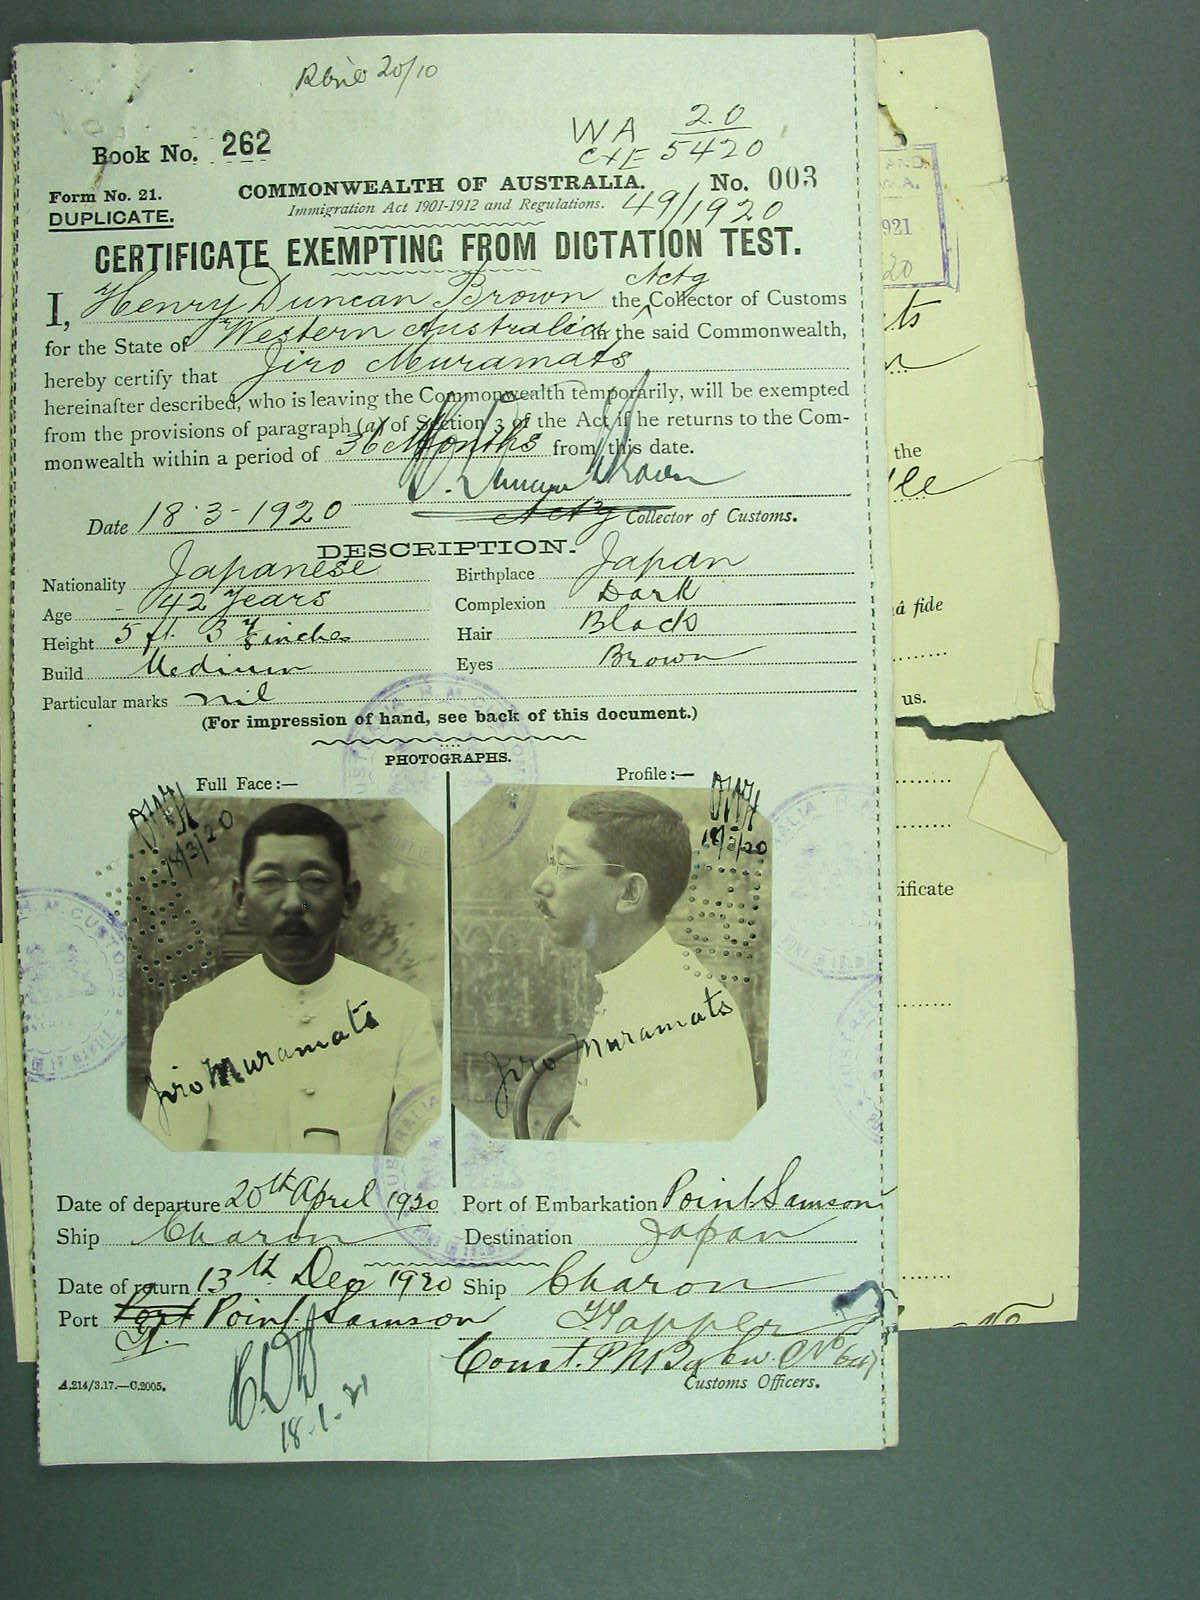 20/10
Book No. 262
WA 20
C+E 5420
Form No. 21.
COMMONWEALTH OF AUSTRALIA.
No. 003
DUPLICATE.
Immigration Act 1901-1912 and Regulations.
49/1920
CERTIFICATE EXEMPTING FROM DICTATION TEST.
Actg
I, Henry Duncan Brown the Collector of Customs
for the State of Western Australia in the said Commonwealth,
hereby certify that Jiro Muramats
hereinafter described, who is leaving the Commonwealth temporarily, will be exempted
from the provisions of paragraph (a) of Section 3 of the Act if he returns to the Com-
monwealth within a period of 36 Months from this date.
H. Duncan Brown
Date 18-3-1920
Actg Collector of Customs.
DESCRIPTION.
Nationality Japanese Birthplace Japan
Age 42 Years Complexion Dark
Height 5 ft. 3 7/8 inches Hair Black
Build Medium Eyes Brown
Particular marks nil
(For impression of hand, see back of this document.)
PHOTOGRAPHS.
Full Face:—
Profile:—
18/3/20
18/3/20
Jiro Muramats
Jiro Muramats
Date of departure 20th April 1920 Port of Embarkation Point Samson
Ship Charon Destination Japan
Date of return 13th Dec 1920 Ship Charon
Port Port Point Samson
Customs Officers.
A.214/3.17.—C.2005.
18-1-21
1921
20
ts
the
lle
nâ fide
us.
tificate